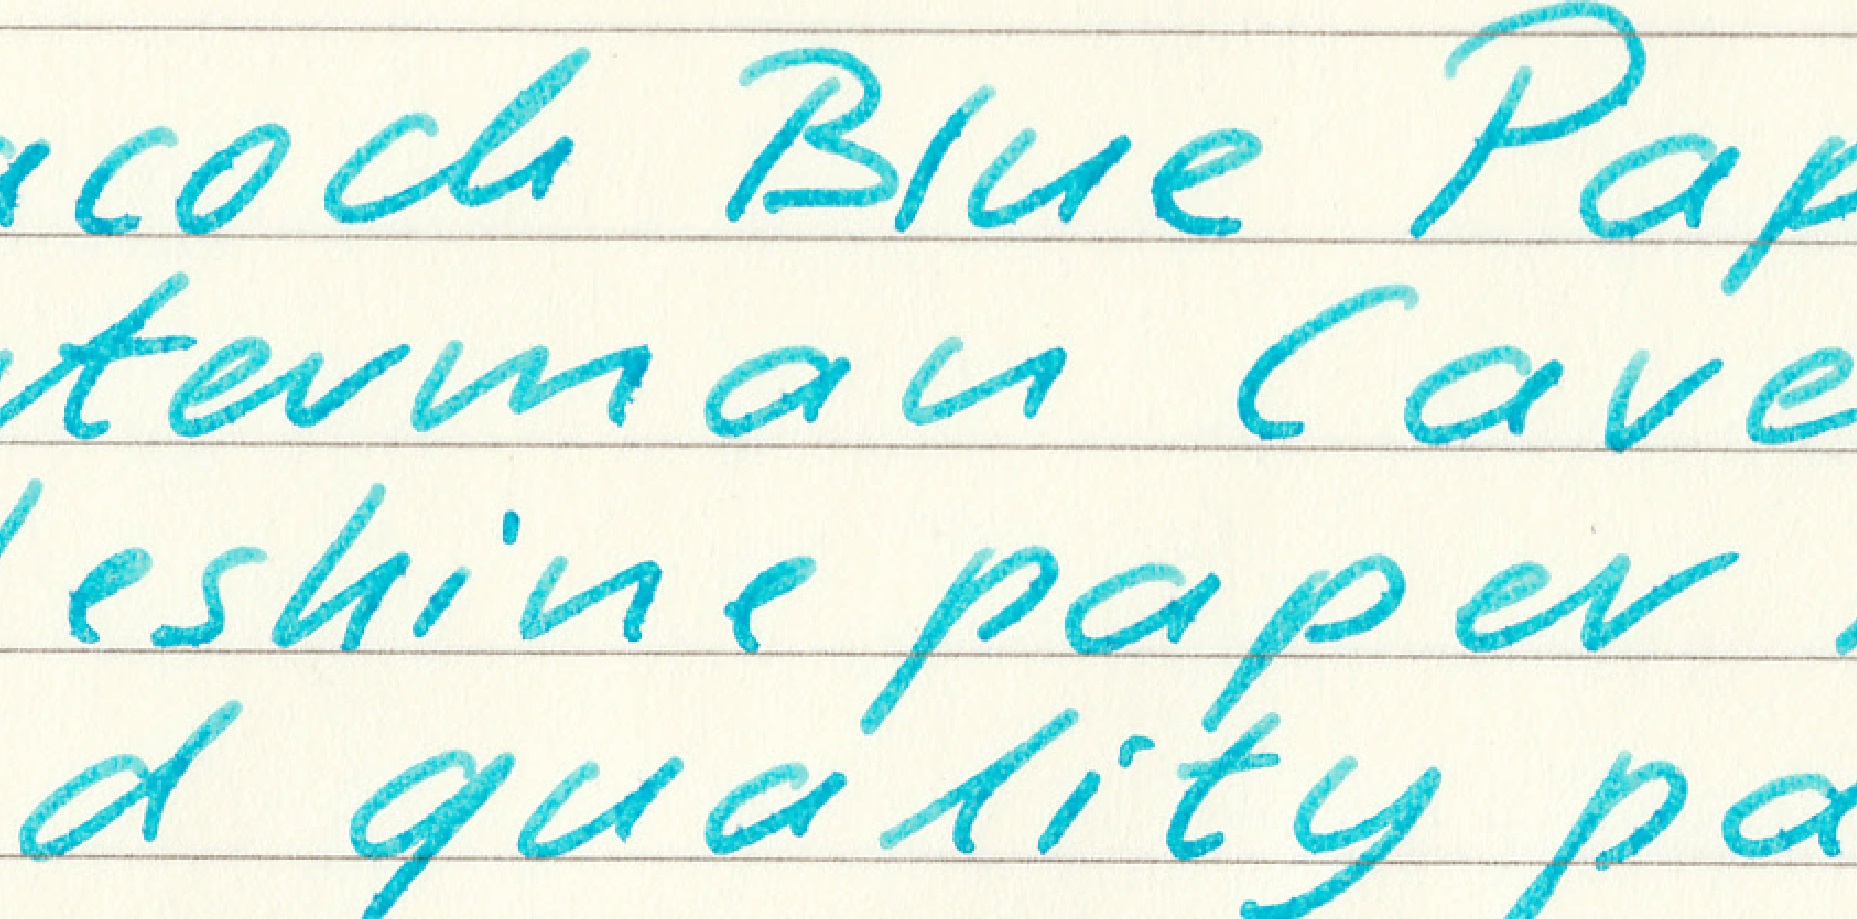 acock Blue Pap
terman Cave
leshine paper
d quality pa